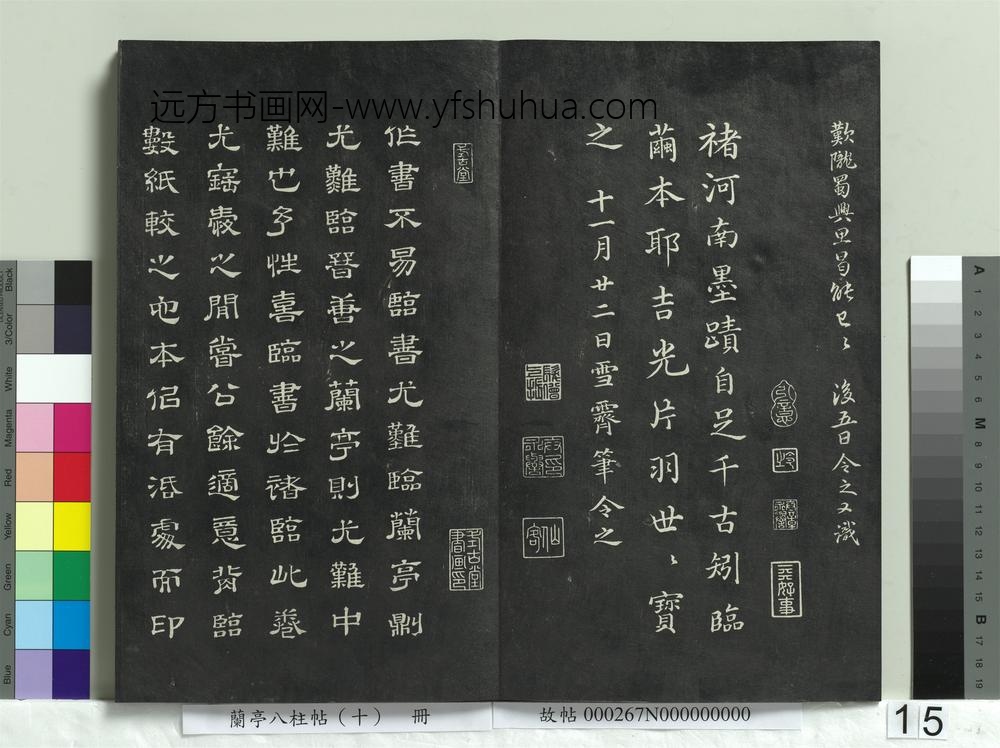 远方书画网-www.yfshuhua.com
歎隴蜀興思曷能已〻 後五日令之又識
禇河南墨蹟自足千古矧臨
繭本耶吉光片羽世〻寶
之 十一月廿二日雪霽筆令之
心賞
元好事
仙客
千古堂
千古堂書画印
作書不易臨書尤難臨蘭亭則
尤難臨晉善之蘭亭則尤難中
難也予性喜臨書於諸臨此卷
尤寤寐之間嘗公餘適意背臨
數紙較之他本侣有活處而印
蘭亭八柱帖（十） 冊
故帖 000267N000000000
15
Black
3/Color
White
Magenta
Red
Yellow
Green
Cyan
Blue
A
1
2
3
4
5
6
M
8
9
10
11
12
13
14
15
B
17
18
19